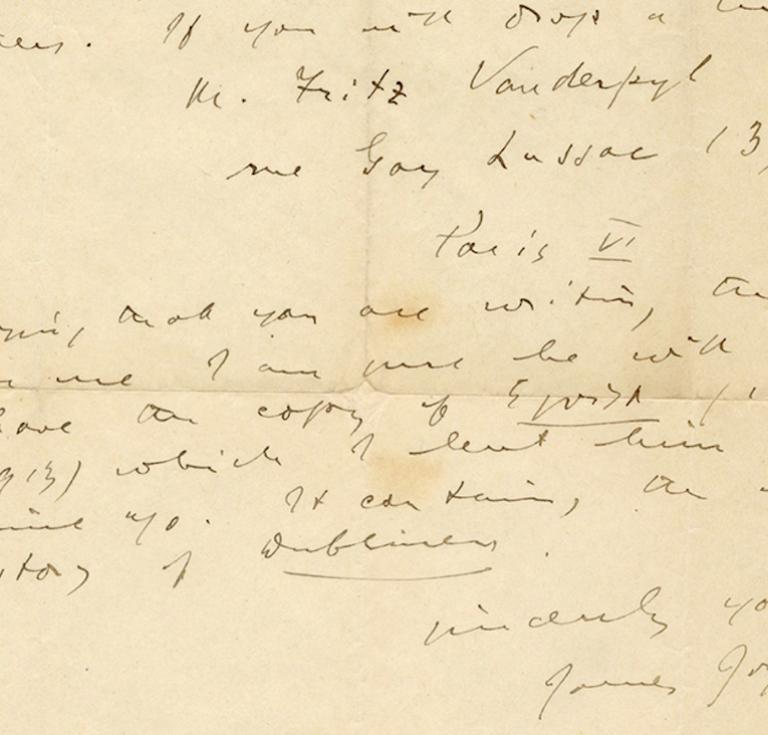 If you will drop a
M. Fritz Vanderpyl
rue Gay Lussac (3,
Paris VI
that you are writing, the
me I am sure he will
have the copy of Egoist
913) which I lent him
time ago. It contains, the
story of Dubliners.
sincerely yo
James Joy